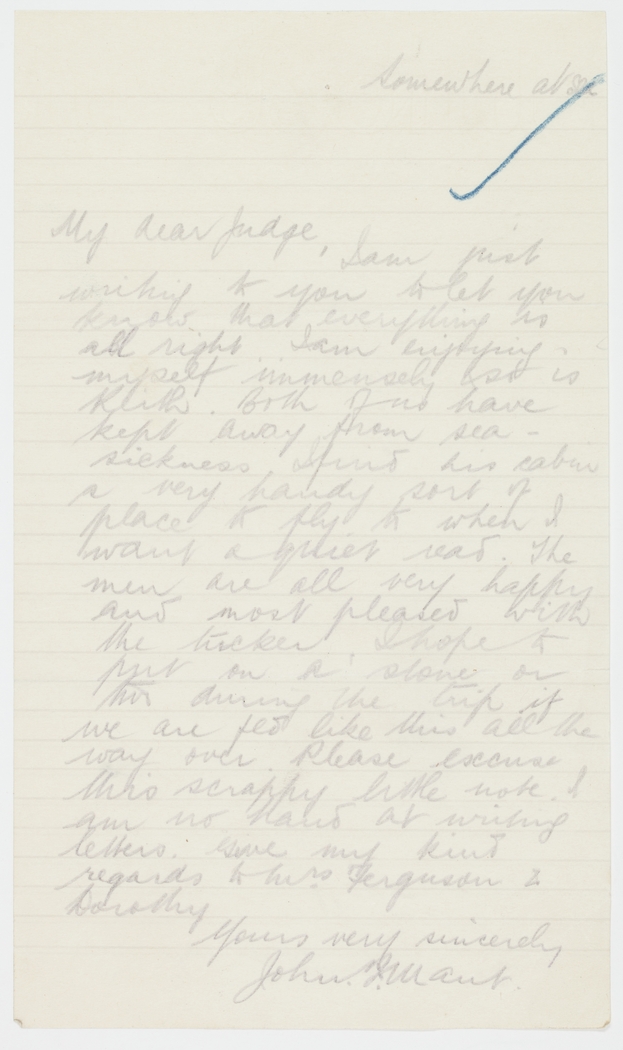 Somewhere at Sea
My dear Judge,
I am just
writing to you to let you
know that everything is
all right. I am enjoying
myself immensely & so is
Keith. Both of us have
kept away from sea-
sickness. I find his cabin
a very handy sort of
place to fly to when I
want a quiet read. The
men are all very happy
and most pleased with
the tucker. I hope to
put on a stone or
two during the trip if
we are fed like this all the
way over. Please excuse
this scrappy little note. I
am no hand at writing
letters. Give my kind
regards to Mrs Ferguson &
Dorothy
Yours very sincerely,
John. Maut.